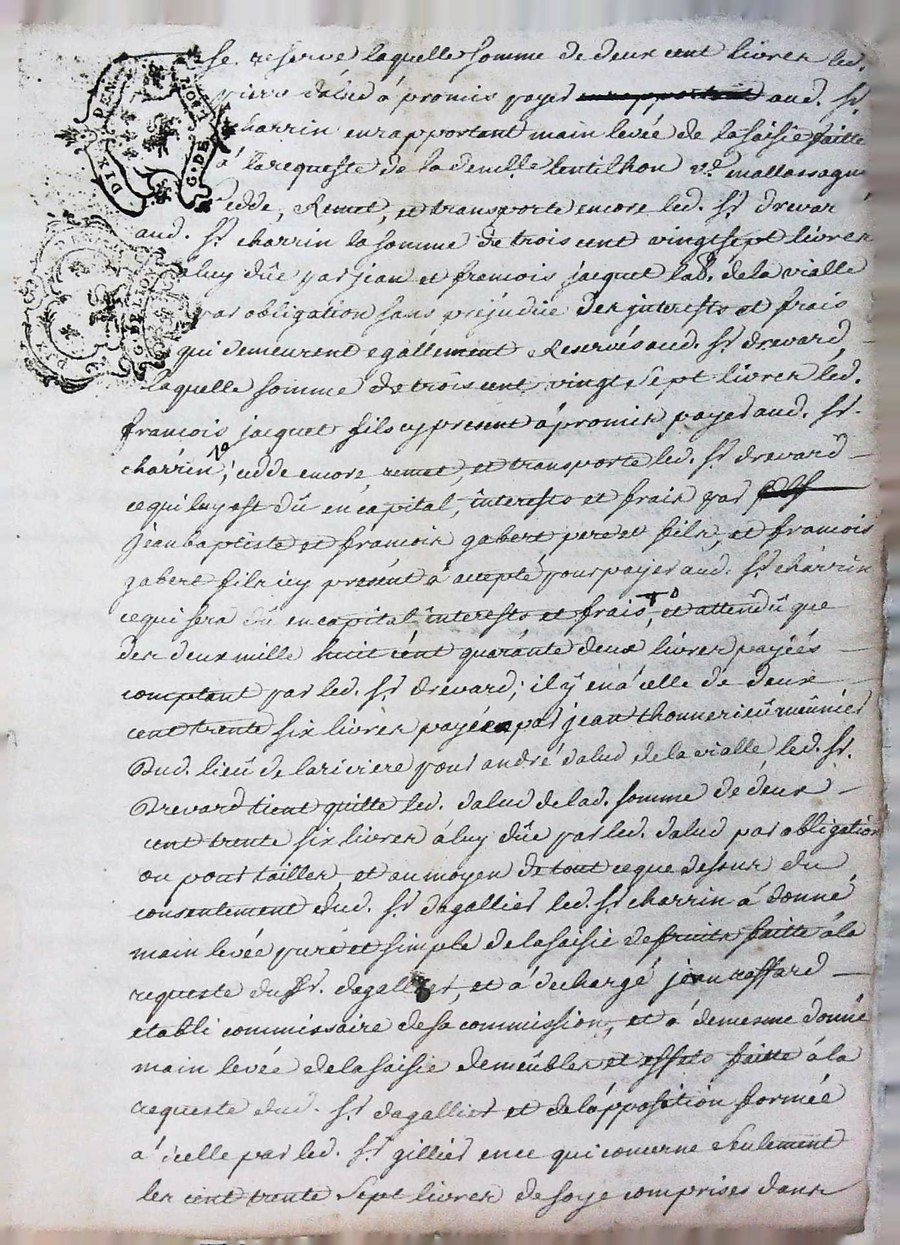 se reserve laquelle somme de deux cent livres led.
pierre dalud à promis payer aud. Sr.
charrin en rapportant main levée de la saisie faitte
à la requeste de la demlle lentilhon ve.
cedde, Remet, et transporte encore led. Sr. drevar
aud. Sr. charrin la somme de trois cent vingt sept livres
a luy dûe par jean et francois jacquet lab. de la vialle
par obligation sans prejudice des interests et frais
qui demeurent egallement Reservés aud. Sr. drevard,
laquelle somme de trois cent vingt sept livres led.
francois jacquet fils cy present à promis payer aud. Sr.
charrin; cedde encore, remet, et transporte led. Sr. drevard
ce qui luy est dû en capital, interests et frais par
jean baptiste et francois gabert pere et fils, et francois
gabert fils icy present à accepté pour payer aud. Sr. charrin
ce qui sera dû en capital interests et frais, et attendû que
des deux mille huit cent quarante deux livres payées
comptant par led. Sr. drevard; il y en à celle de deux
cent trente six livres payée par jean thonnerieû meûnier
Dud. lieû de la riviere pour andré dalud de la vialle led. Sr.
Drevard tient quitte led. dalud de lad. somme de deux
cent trente six livres à luy dûe par led. dalud par obligation
ou pour tailles et au moyen de tout ce que dessus du
consentement dud. Sr. dagallier led. Sr. charrin à donné
main levée pure et simple de la saisie de fruits faitte à la
requeste dud. Sr. dagallier, et à dechargé jean raffard
etabli commissaire de sa commission, et à de mesme donné
main levée de la saisie de meûbles et effets faitte à la
requeste dud. Sr. dagallier et de l'apposition formée
à icelle par led. Sr. gillier en ce qui concerne seulement
les cent trente sept livres de soye comprises dans
DIX DEN.
G. DE LYON
DIX DEN
G. DE LYON